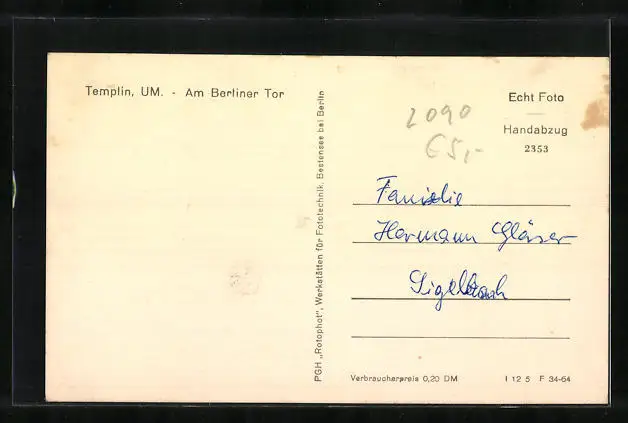 Templin, UM. - Am Berliner Tor
PGH „Rotophot", Werkstätten für Fototechnik, Bestensee bei Berlin
2090
€5,-
Echt Foto
Handabzug
2353
Familie
Hermann Gläser
Sigelbach
Verbraucherpreis 0,20 DM
I 12 5 F 34-64